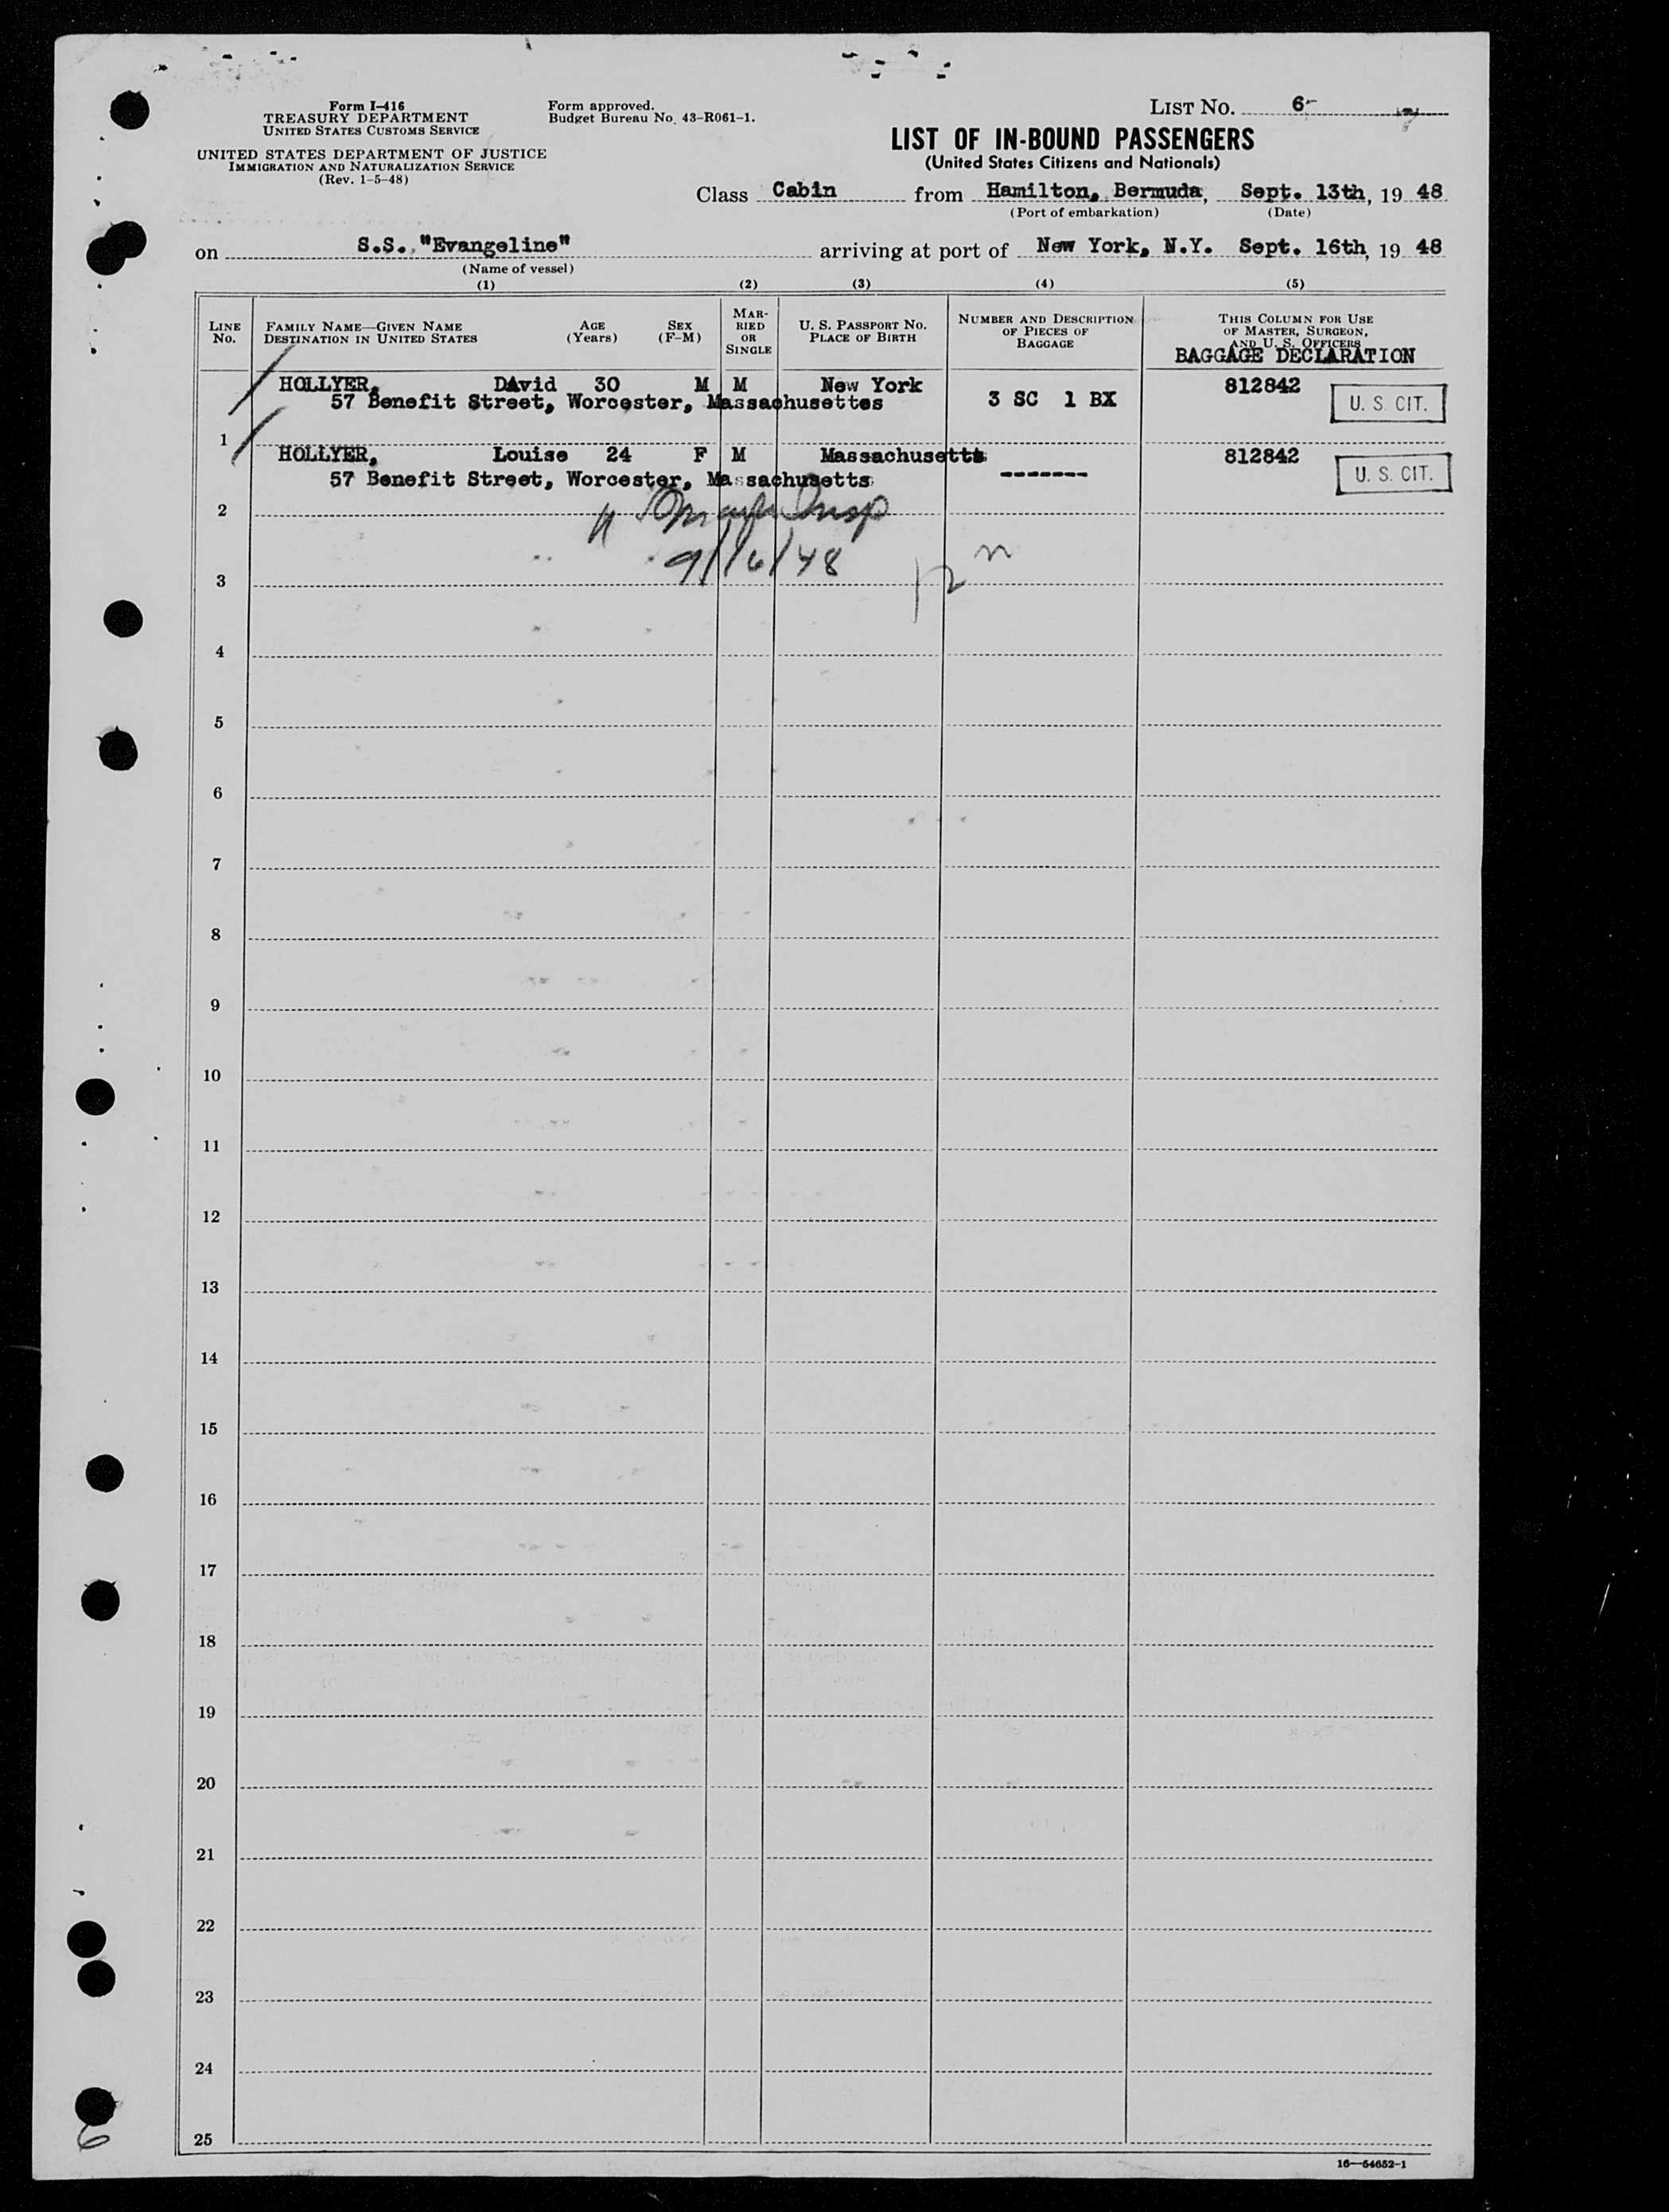 Form I-416
TREASURY DEPARTMENT
UNITED STATES CUSTOMS SERVICE
UNITED STATES DEPARTMENT OF JUSTICE
IMMIGRATION AND NATURALIZATION SERVICE
(Rev. 1-5-48)
Form approved.
Budget Bureau No. 43-R061-1.
LIST NO. 6-
LIST OF IN-BOUND PASSENGERS
(United States Citizens and Nationals)
Class Cabin from Hamilton, Bermuda, Sept. 13th, 19 48
(Port of embarkation) (Date)
on S.S. "Evangeline" arriving at port of New York, N.Y. Sept. 16th, 19 48
(Name of vessel)
(1) (2) (3) (4) (5)
LINE NO.
FAMILY NAME—GIVEN NAME
DESTINATION IN UNITED STATES
AGE (Years)
SEX (F-M)
MARRIED OR SINGLE
U. S. PASSPORT NO.
PLACE OF BIRTH
NUMBER AND DESCRIPTION
OF PIECES OF
BAGGAGE
THIS COLUMN FOR USE
OF MASTER, SURGEON,
AND U. S. OFFICERS
BAGGAGE DECLARATION
HOLLYER, DAvid 30 M M New York 812842
57 Benefit Street, Worcester, Massachusettes 3 SC 1 BX U. S. CIT.
1
HOLLYER, Louise 24 F M Massachusetts 812842
57 Benefit Street, Worcester, Massachusetts ------- U. S. CIT.
2
Insp
9/16/48
3
4
5
6
7
8
9
10
11
12
13
14
15
16
17
18
19
20
21
22
23
24
25
6
16—54652-1